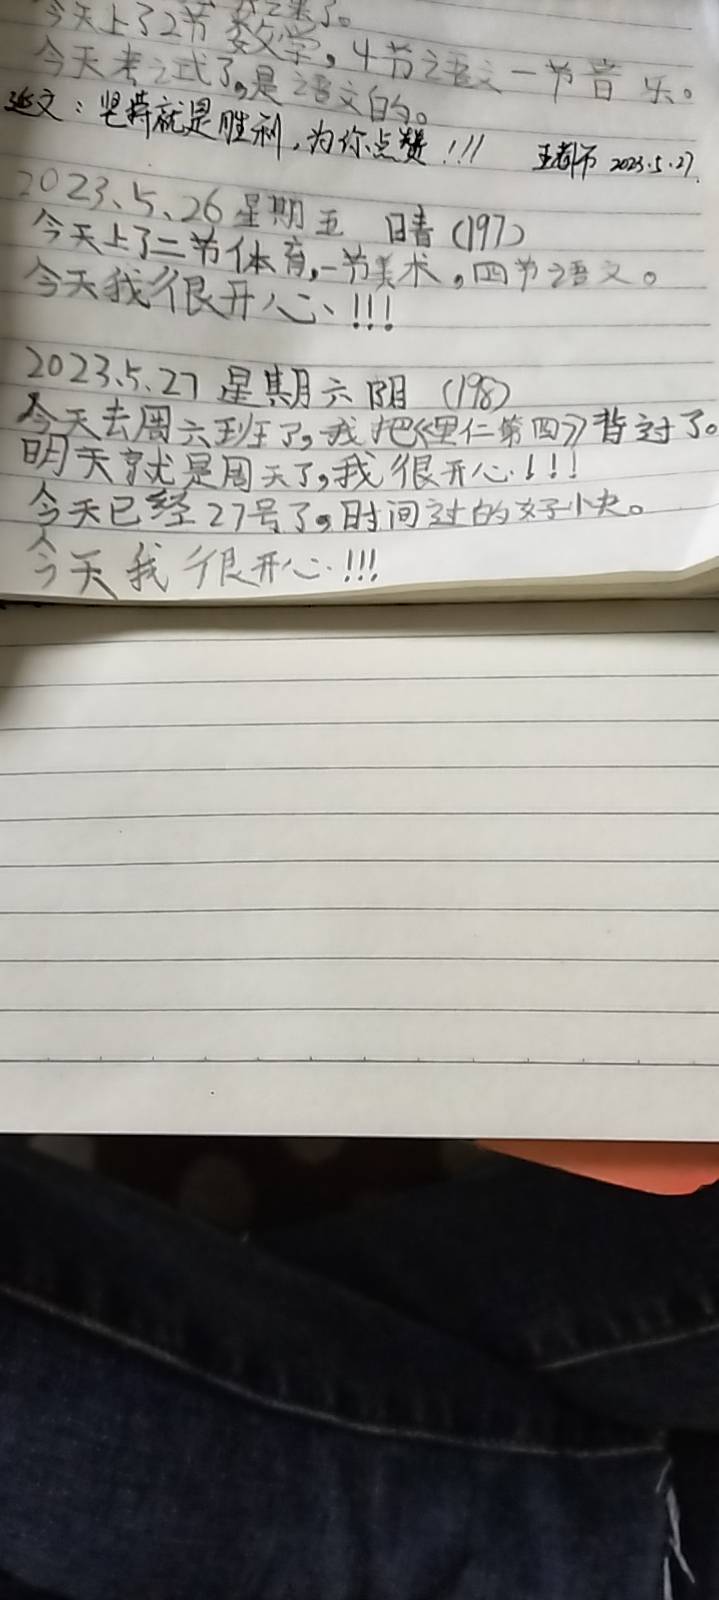 今天上了2节数学，4节语文一节音乐。
今天考试了，是语文的。
文：坚持就是胜利，为你点赞！！！ 王老师 2023.5.27.
2023、5、26 星期五 晴（197）
今天上了二节体育，一节美术，四节语文。
今天我很开心、！！！
2023、5、27 星期六 阴 （198）
今天去周六班了，我把《里仁第四》背过了。
明天就是周天了，我很开心.！！！
今天已经27号了，时间过的好快。
今天我很开心.！！！